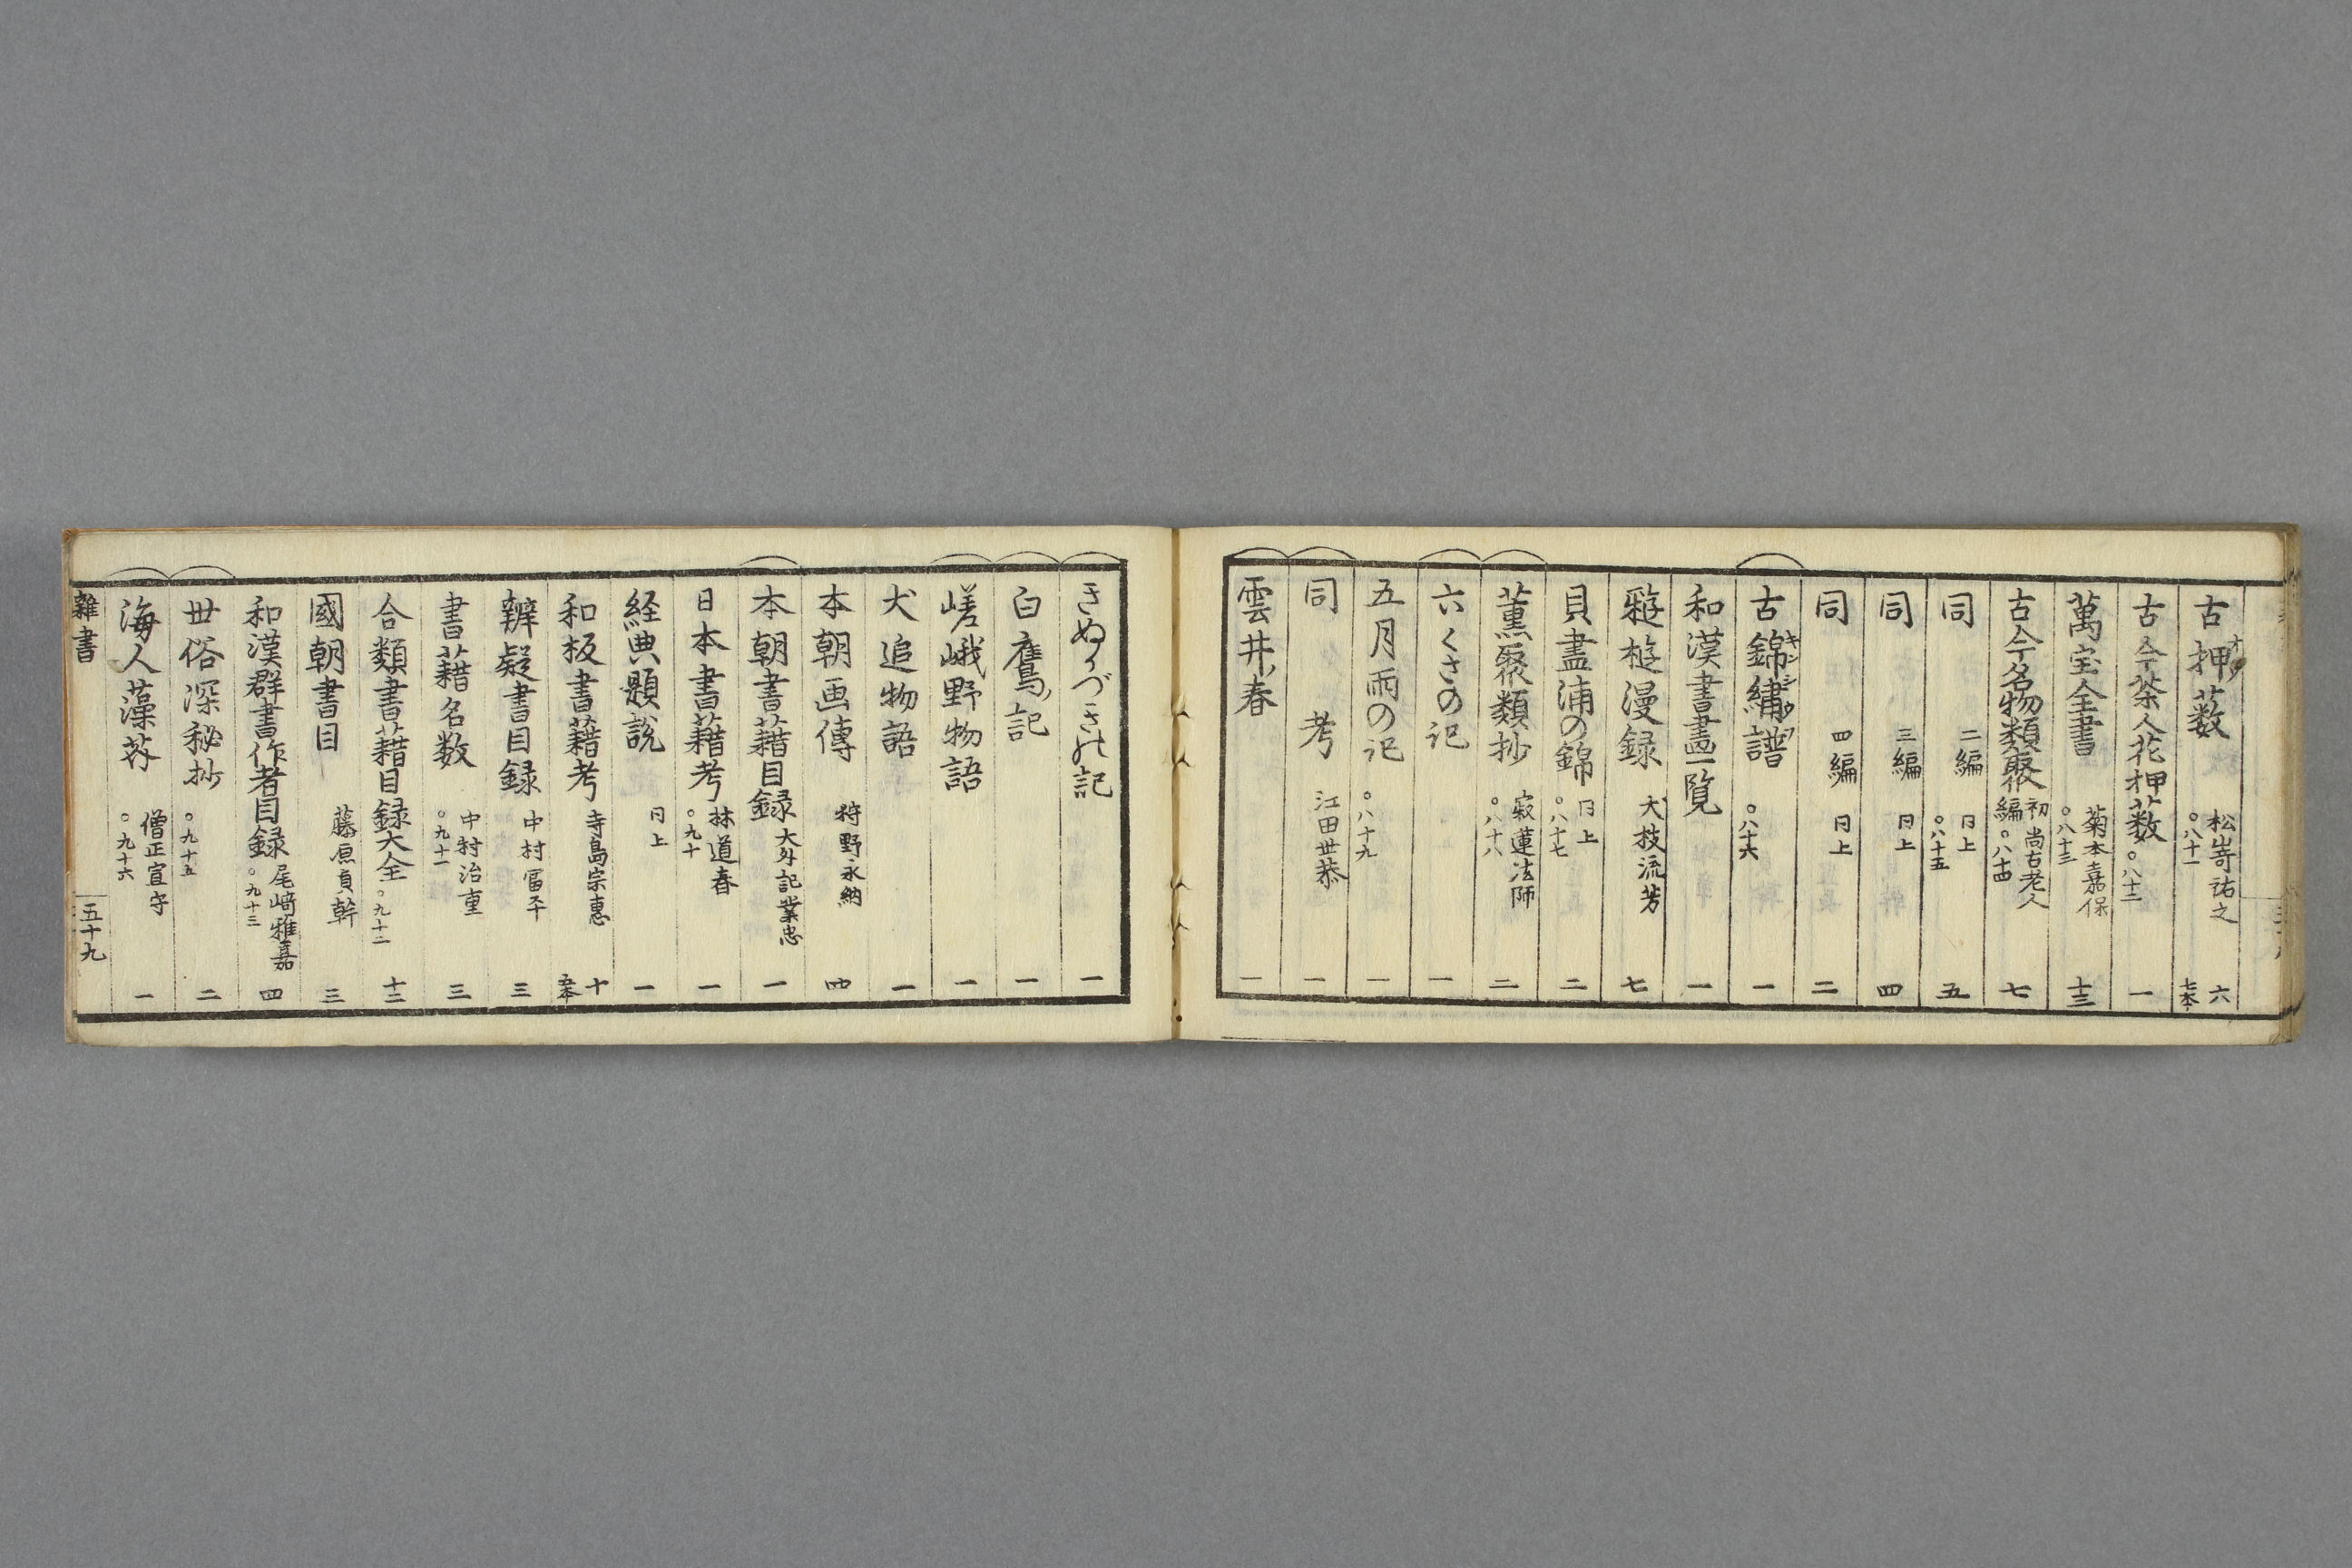 古押薮 松嵜祐之 ○八十一 六 七本
古今茶人花押薮 ○八十二 一
萬宝全書 菊本嘉保 ○八十三 十三
古今名物類聚 初編 尚古老人 ○八十四 七
同 二編 同上 ○八十五 五
同 三編 同上 四
同 四編 同上 二
古錦繍譜 キンシウ ○八十六 一
和漢書畫一覧 一
雅遊漫録 大枝流芳 七
貝盡浦の錦 同上 ○八十七 二
薫聚類抄 寂蓮法師 ○八十八 二
六くさの記 一
五月雨の記 ○八十九 一
同 考 江田世恭 一
雲井ノ春 一
きぬかづきの記 一
白鷹ノ記 一
嵯峨野物語 一
犬追物語 一
本朝画傳 狩野永納 四
本朝書藉目録 大外記業忠 一
日本書藉考 林道春 ○九十 一
経典題説 同上 一
和板書藉考 寺島宗恵 十 五本
辨疑書目録 中村冨平 三
書藉名数 中村治重 ○九十一 三
合類書藉目録大全 ○九十二 十二
國朝書目 藤原貞幹 三
和漢群書作者目録 尾﨑雅嘉 ○九十三 四
世俗深秘抄 ○九十五 二
海人藻芥 僧正宣守 ○九十六 一
雜書 五十九